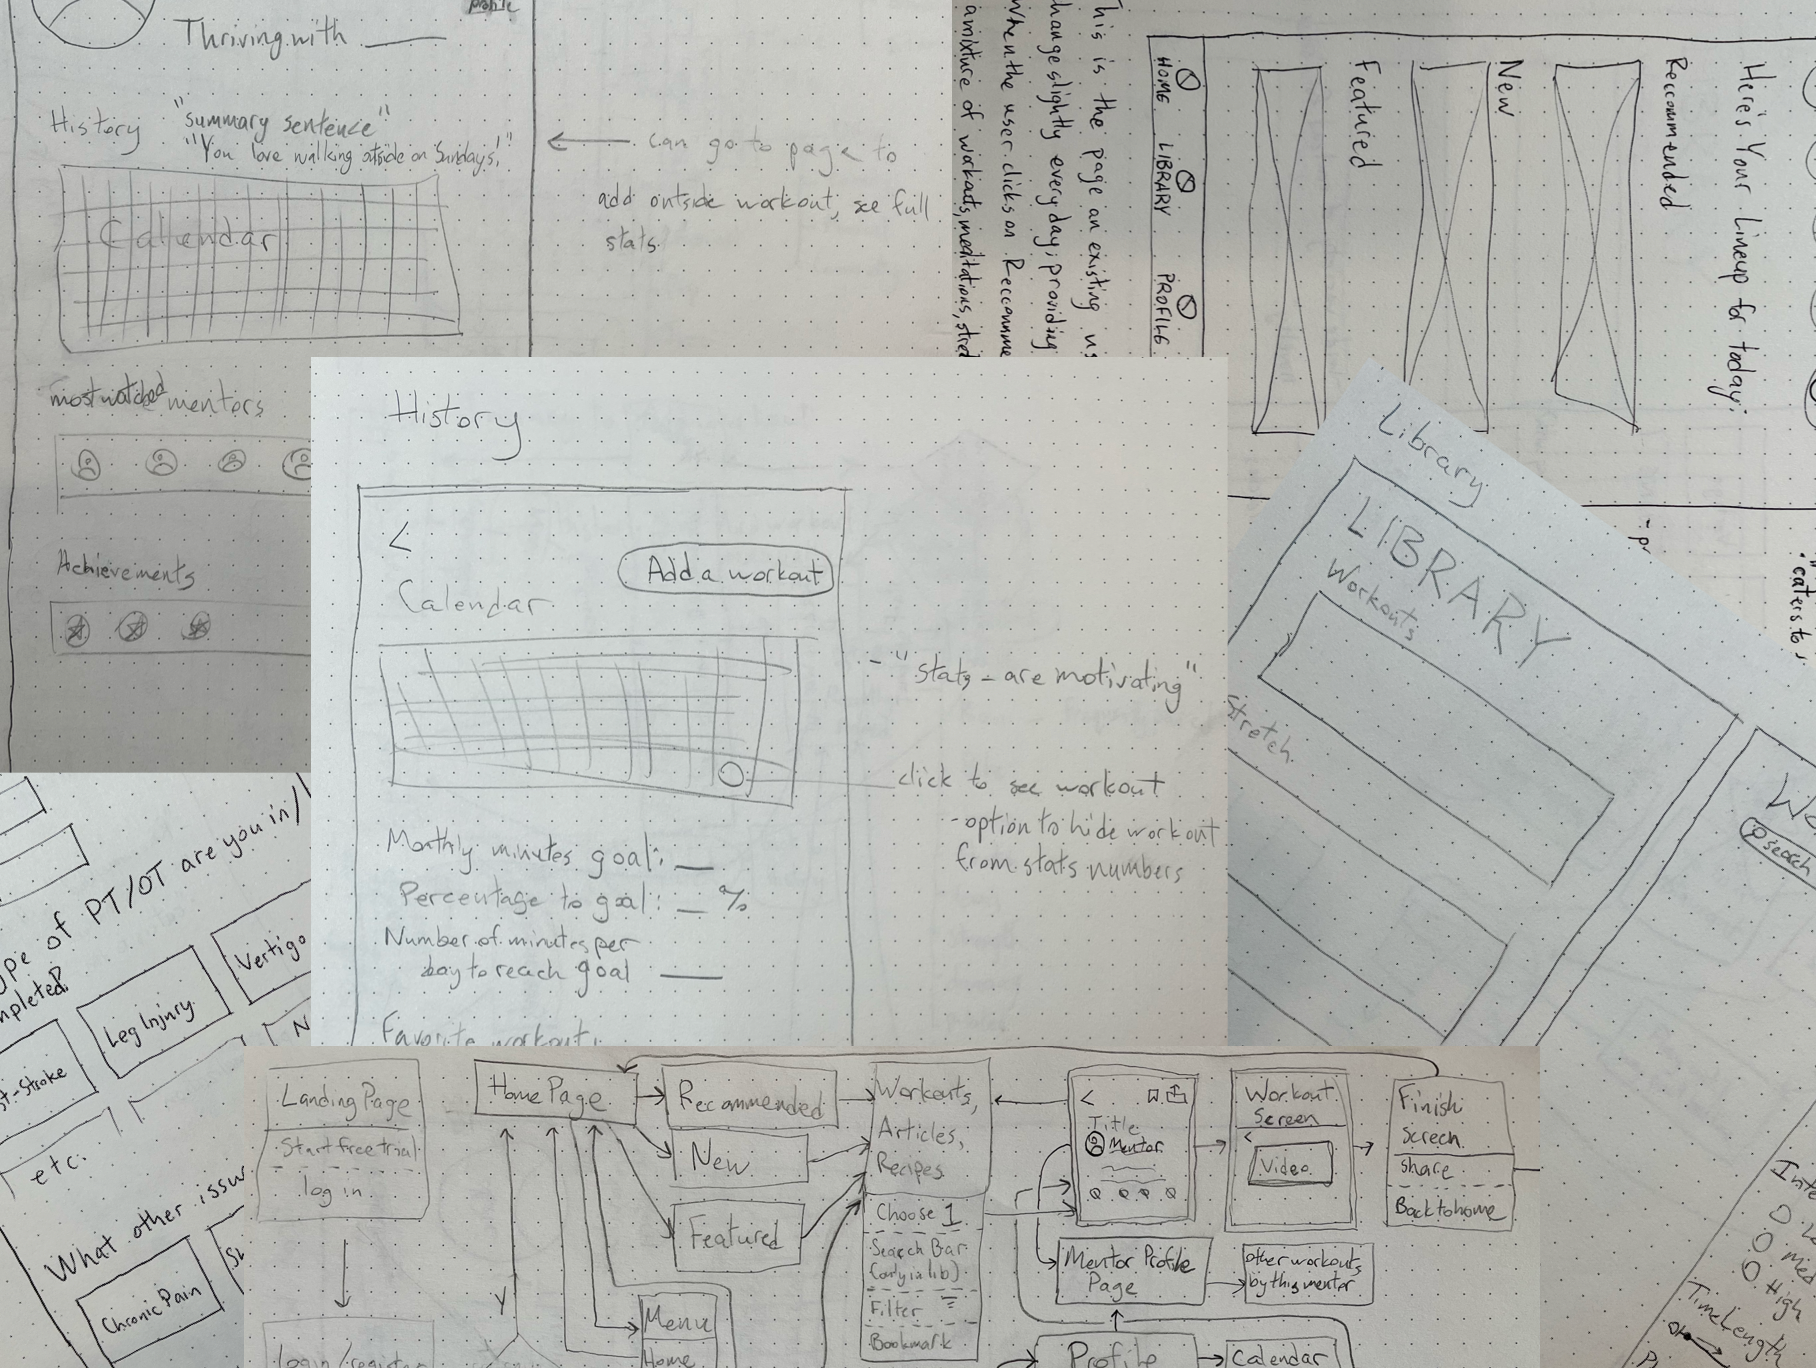 profile
Thriving with
"summary sentence"
History
"You love walking otside on Sundays."
Calendar
can go to page to
add outside workout, see full
stats
most watched mentors
Achievements
This is the page an existing us
change slightly every day, providing
When the user clicks on Recomme
a mixture of workouts, meditations, stret
HOME LIBRARY PROFILE
Featured
New
Reccommended
Here's Your Lineup for today:
History
<
Add a workout
Calendar
- "Stats - are motivating"
click to see workout
- option to hide workout
from stats numbers
Monthly minutes goal:
Percentage to goal: %
Number of minutes per
day to reach goal
Favorite workout:
Library
LIBRARY
Workouts
Stretch
caters to
We
search
ype of PT/OT are you in/
mpleted?
Vertigo
Leg Injury
st-Stroke
N
etc.
What other issu
Chronic Pain
Landing Page
Start free trial
log in
login/register
Home Page
Recommended
New
Featured
Menu
Home
Workouts,
Articles,
Recipes
Choose 1
Search Bar
(only in lib)
Filter
Bookmark
<
Title
Mentor
Workout
Screen
<
Video
Finish
Screen
Share
Back to home
Mentor Profile
Page
other workouts
by this mentor
Profile
Calendar
Inte
Med
High
Time Length